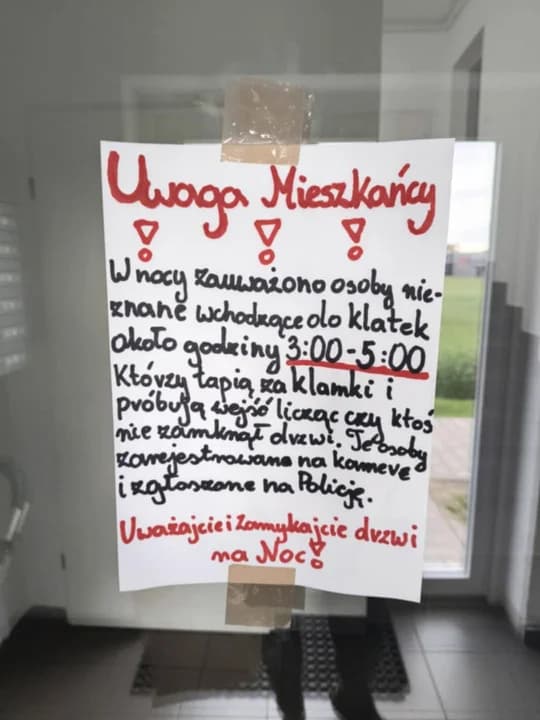 Uwaga Mieszkańcy
! ! !
W nocy zauważono osoby nie-
znane wchodzące do klatek
około godziny 3:00-5:00
Którzy łapią za klamki i
próbują wejść licząc czy ktoś
nie zamknął drzwi. Te osoby
zarejestrowane na kamerę
i zgłoszone na Policję.
Uważajcie i Zamykajcie drzwi
na Noc!